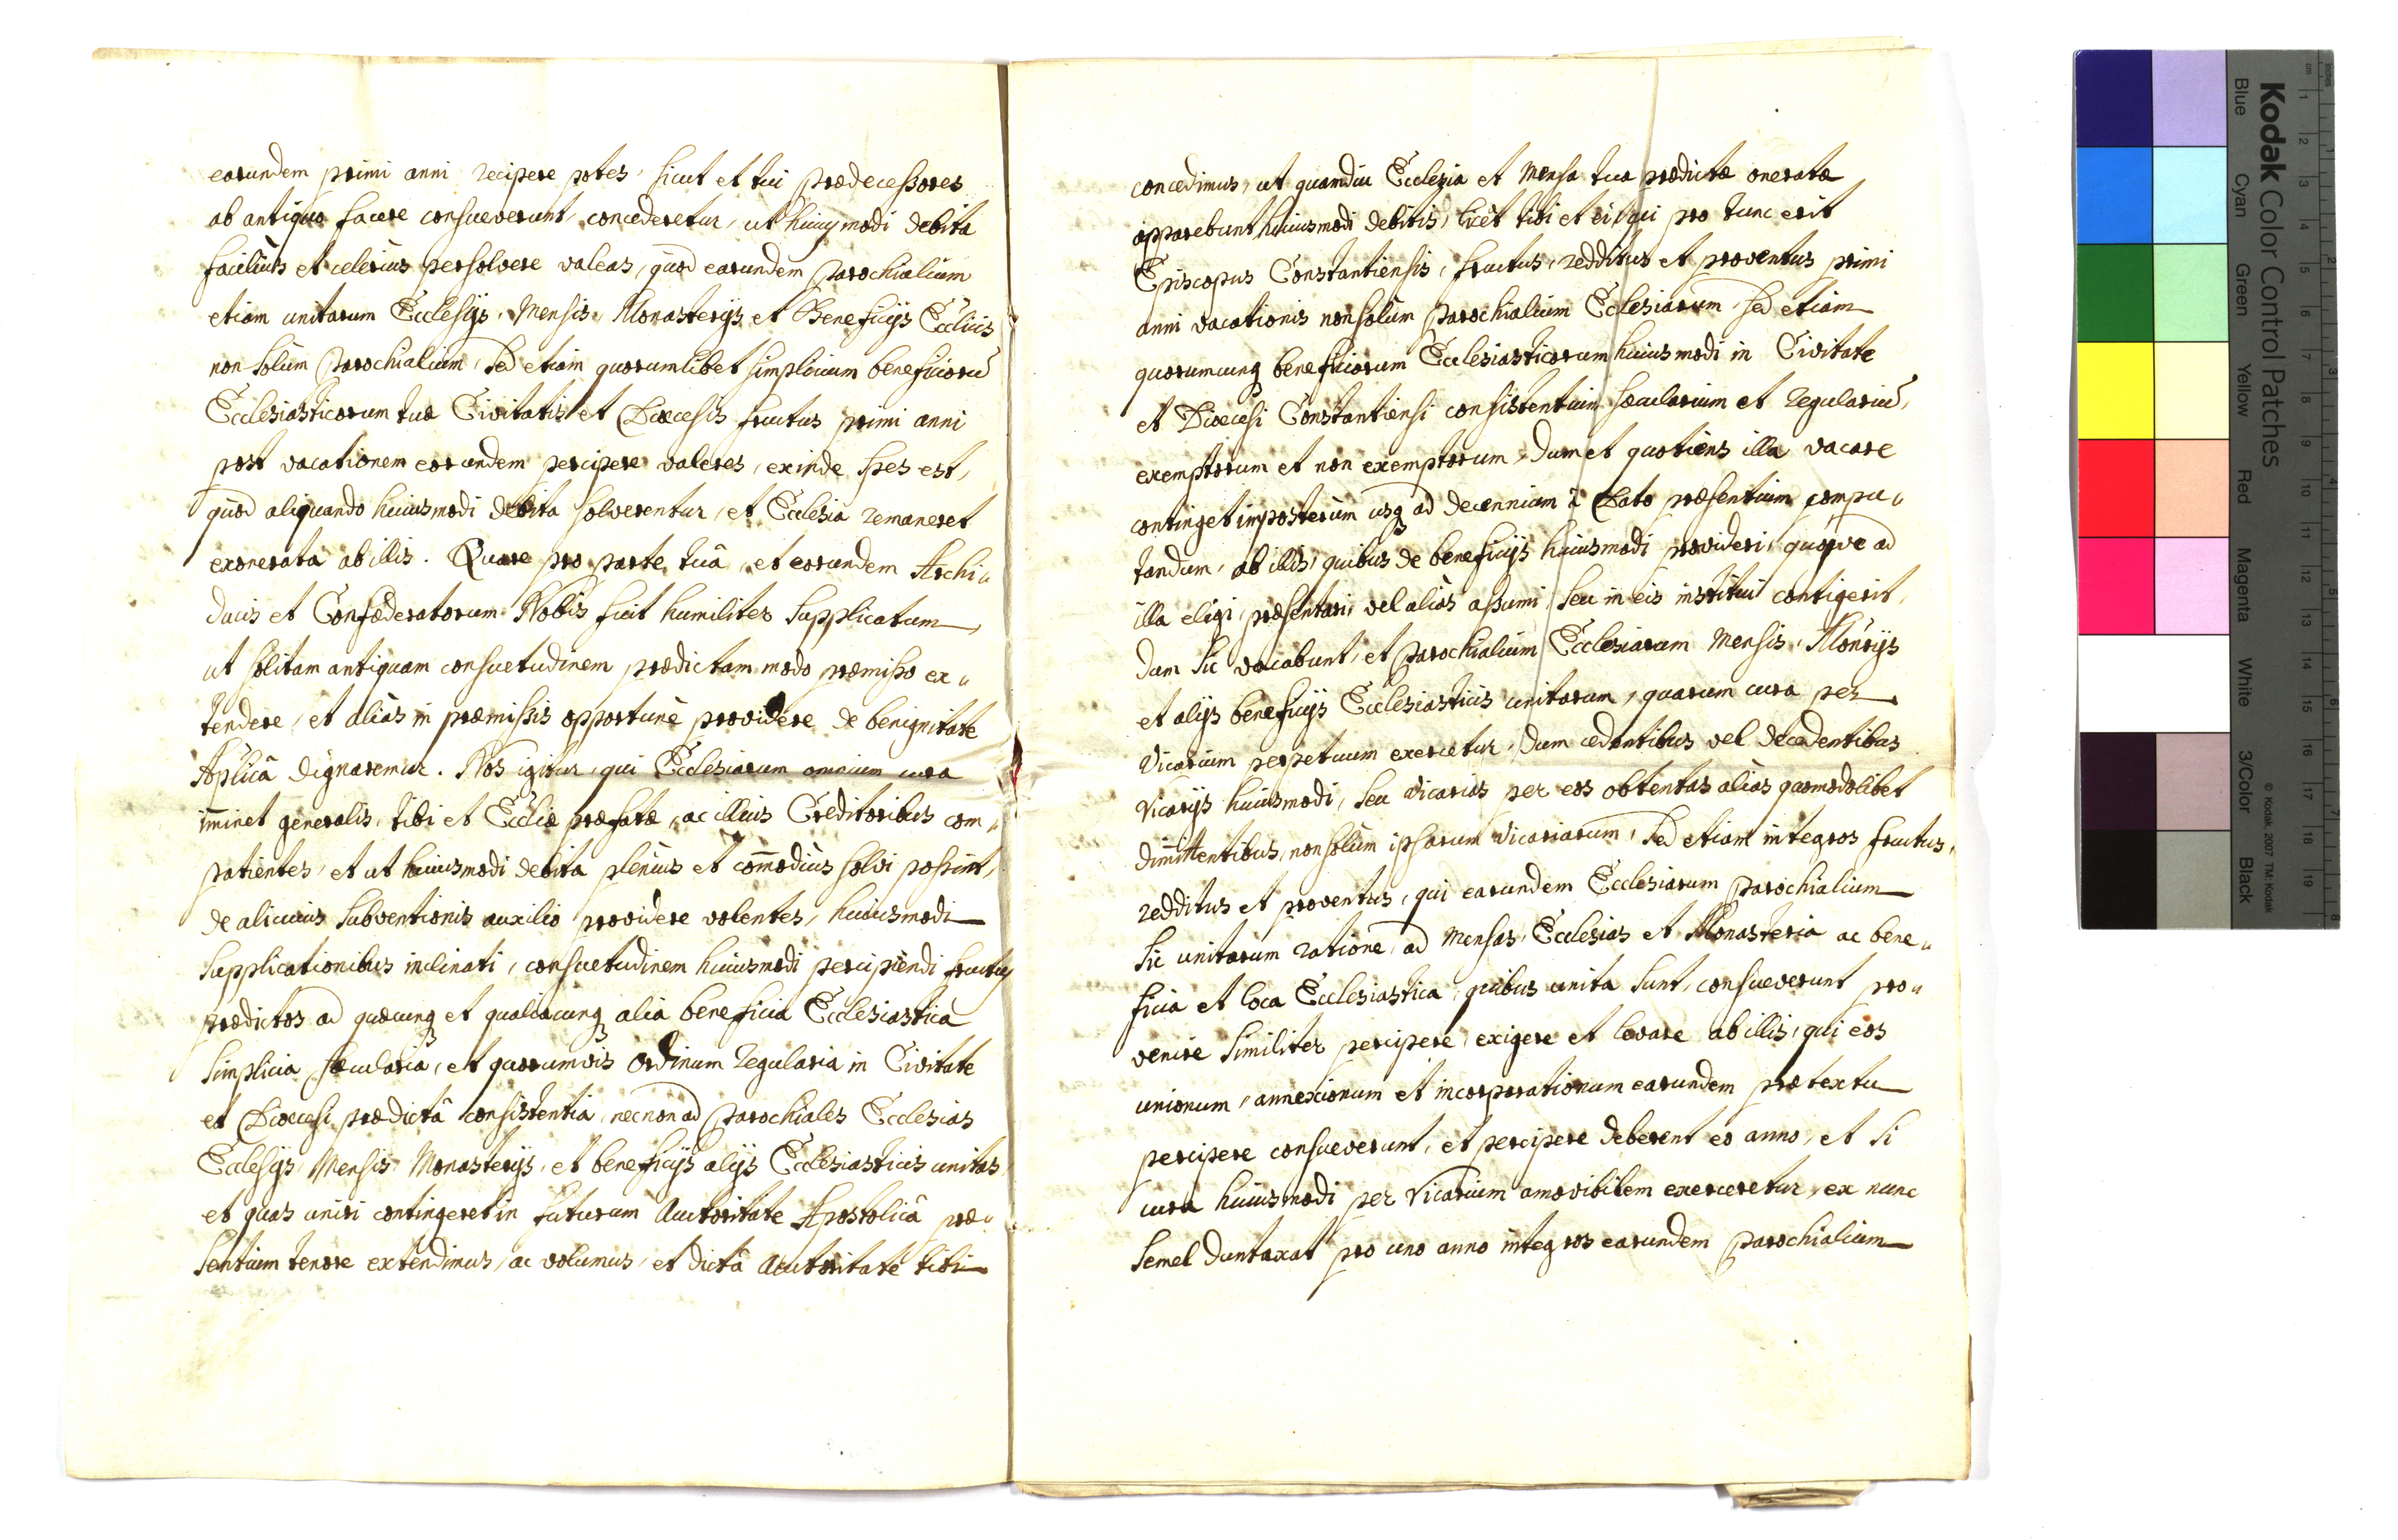 earundem primi anni recipere potes, sicut et tui prædecessores
ab antiquo facere consueverunt, concederetur, ut huiusmodi debita
faciliùs et celeriùs persolvere valeas, quod earundem Parochialium
etiam unitarum Ecclesijs, Mensis, Monasterijs et Beneficijs Eccliis
non solùm Parochialium, sed etiam quorumlibet simplicium beneficiorū
Ecclesiasticorum tuæ Civitatis et Diœcesis fructus primi anni
post vacationem eorundem percipere valeres, exinde spes est,
quod aliquando huiusmodi debita solverentur, et Ecclesia remaneret
exonerata ab illis. Quare pro parte tuâ, et eorundem Archi„
ducis et Confœderatorum Nobis fuit humiliter supplicatum,
ut solitam antiquam consuetudinem prædictam modo præmisso ex„
tendere, et aliàs in præmissis opportunè providere de benignitate
Aplicâ dignaremur. Nos igitur, qui Ecclesiarum omnium cura
im̄inet generalis, tibi et Eccliæ præfatæ, ac illius Creditoribus com„
patientes, et ut huiusmodi debita pleniùs et com̄odiùs solvi possint,
de alicuius subventionis auxilio providere volentes, huiusmodi
supplicationibus inclinati, consuetudinem huiusmodi percipiendi fructus
prædictos ad quæcunq et qualiacunq alia beneficia Ecclesiastica
simplicia sæcularia, et quorumvis Ordinum regularia in Civitate
et Diœcesi prædictâ consistentia, necnon ad Parochiales Ecclesias
Ecclesijs, Mensis, Monasterijs, et beneficijs alijs Ecclesiasticis unitas,
et quas uniri contingeret in futurum Autoritate Apostolicâ præ„
sentium tenore extendimus, ac volumus, et dictâ Autoritate tibi
concedimus, ut quamdiu Ecclesia et Mensa tua prædictæ oneratæ
apparebunt huiusmodi debitis, licèt tibi et ei, qui pro tunc erit
Episcopus Constantiensis, fructus, redditus et proventus primi
anni vacationis non solùm Parochialium Ecclesiarum, sed etiam
quorumcunq beneficiorum Ecclesiasticorum huiusmodi in Civitate
et Diœcesi Constantiensi consistentium sæcularium et regulariū,
exemptorum et non exemptorum, dum et quotiens illa vacare
continget imposterùm usq ad decennium à Dato præsentium compu„
tandum, ab illis, quibus de beneficijs huiusmodi provideri, quosve ad
illa eligi, præsentari, vel aliàs assumi, seu in eis institui contigerit,
dum sic vacabunt, et Parochialium Ecclesiarum Mensis, Monrijs
et alijs beneficijs Ecclesiasticis unitarum, quarum cura per
Vicarium perpetuum exercetur, dum cedentibus vel decedentibus
Vicarijs huiusmodi, seu Vicarias per eos obtentas aliàs quomodolibet
dimittentibus, non solùm ipsarum Vicariarum, sed etiam integros fructus,
redditus et proventus, qui earundem Ecclesiarum Parochialium
sic unitarum ratione, ad Mensas, Ecclesias et Monasteria ac bene„
ficia et loca Ecclesiastica, quibus unita sunt, consueverunt pro„
venire similiter percipere, exigere et levare ab illis, qui eos
unionum, annexionum et incorporationum earundem prætextu
percipere consueverunt, et percipere deberent eo anno, et si
cura huiusmodi per Vicarium amovibilem exerceretur, ex nunc
semel duntaxat pro uno anno integros earundem Parochialium
Kodak Color Control Patches
Blue
Cyan
Green
Yellow
Red
Magenta
White
3/Color
Black
© Kodak, 2007 TM: Kodak
cm 1 2 3 4 5 6 7 8 9 10 11 12 13 14 15 16 17 18 19
inches 1 2 3 4 5 6 7 8